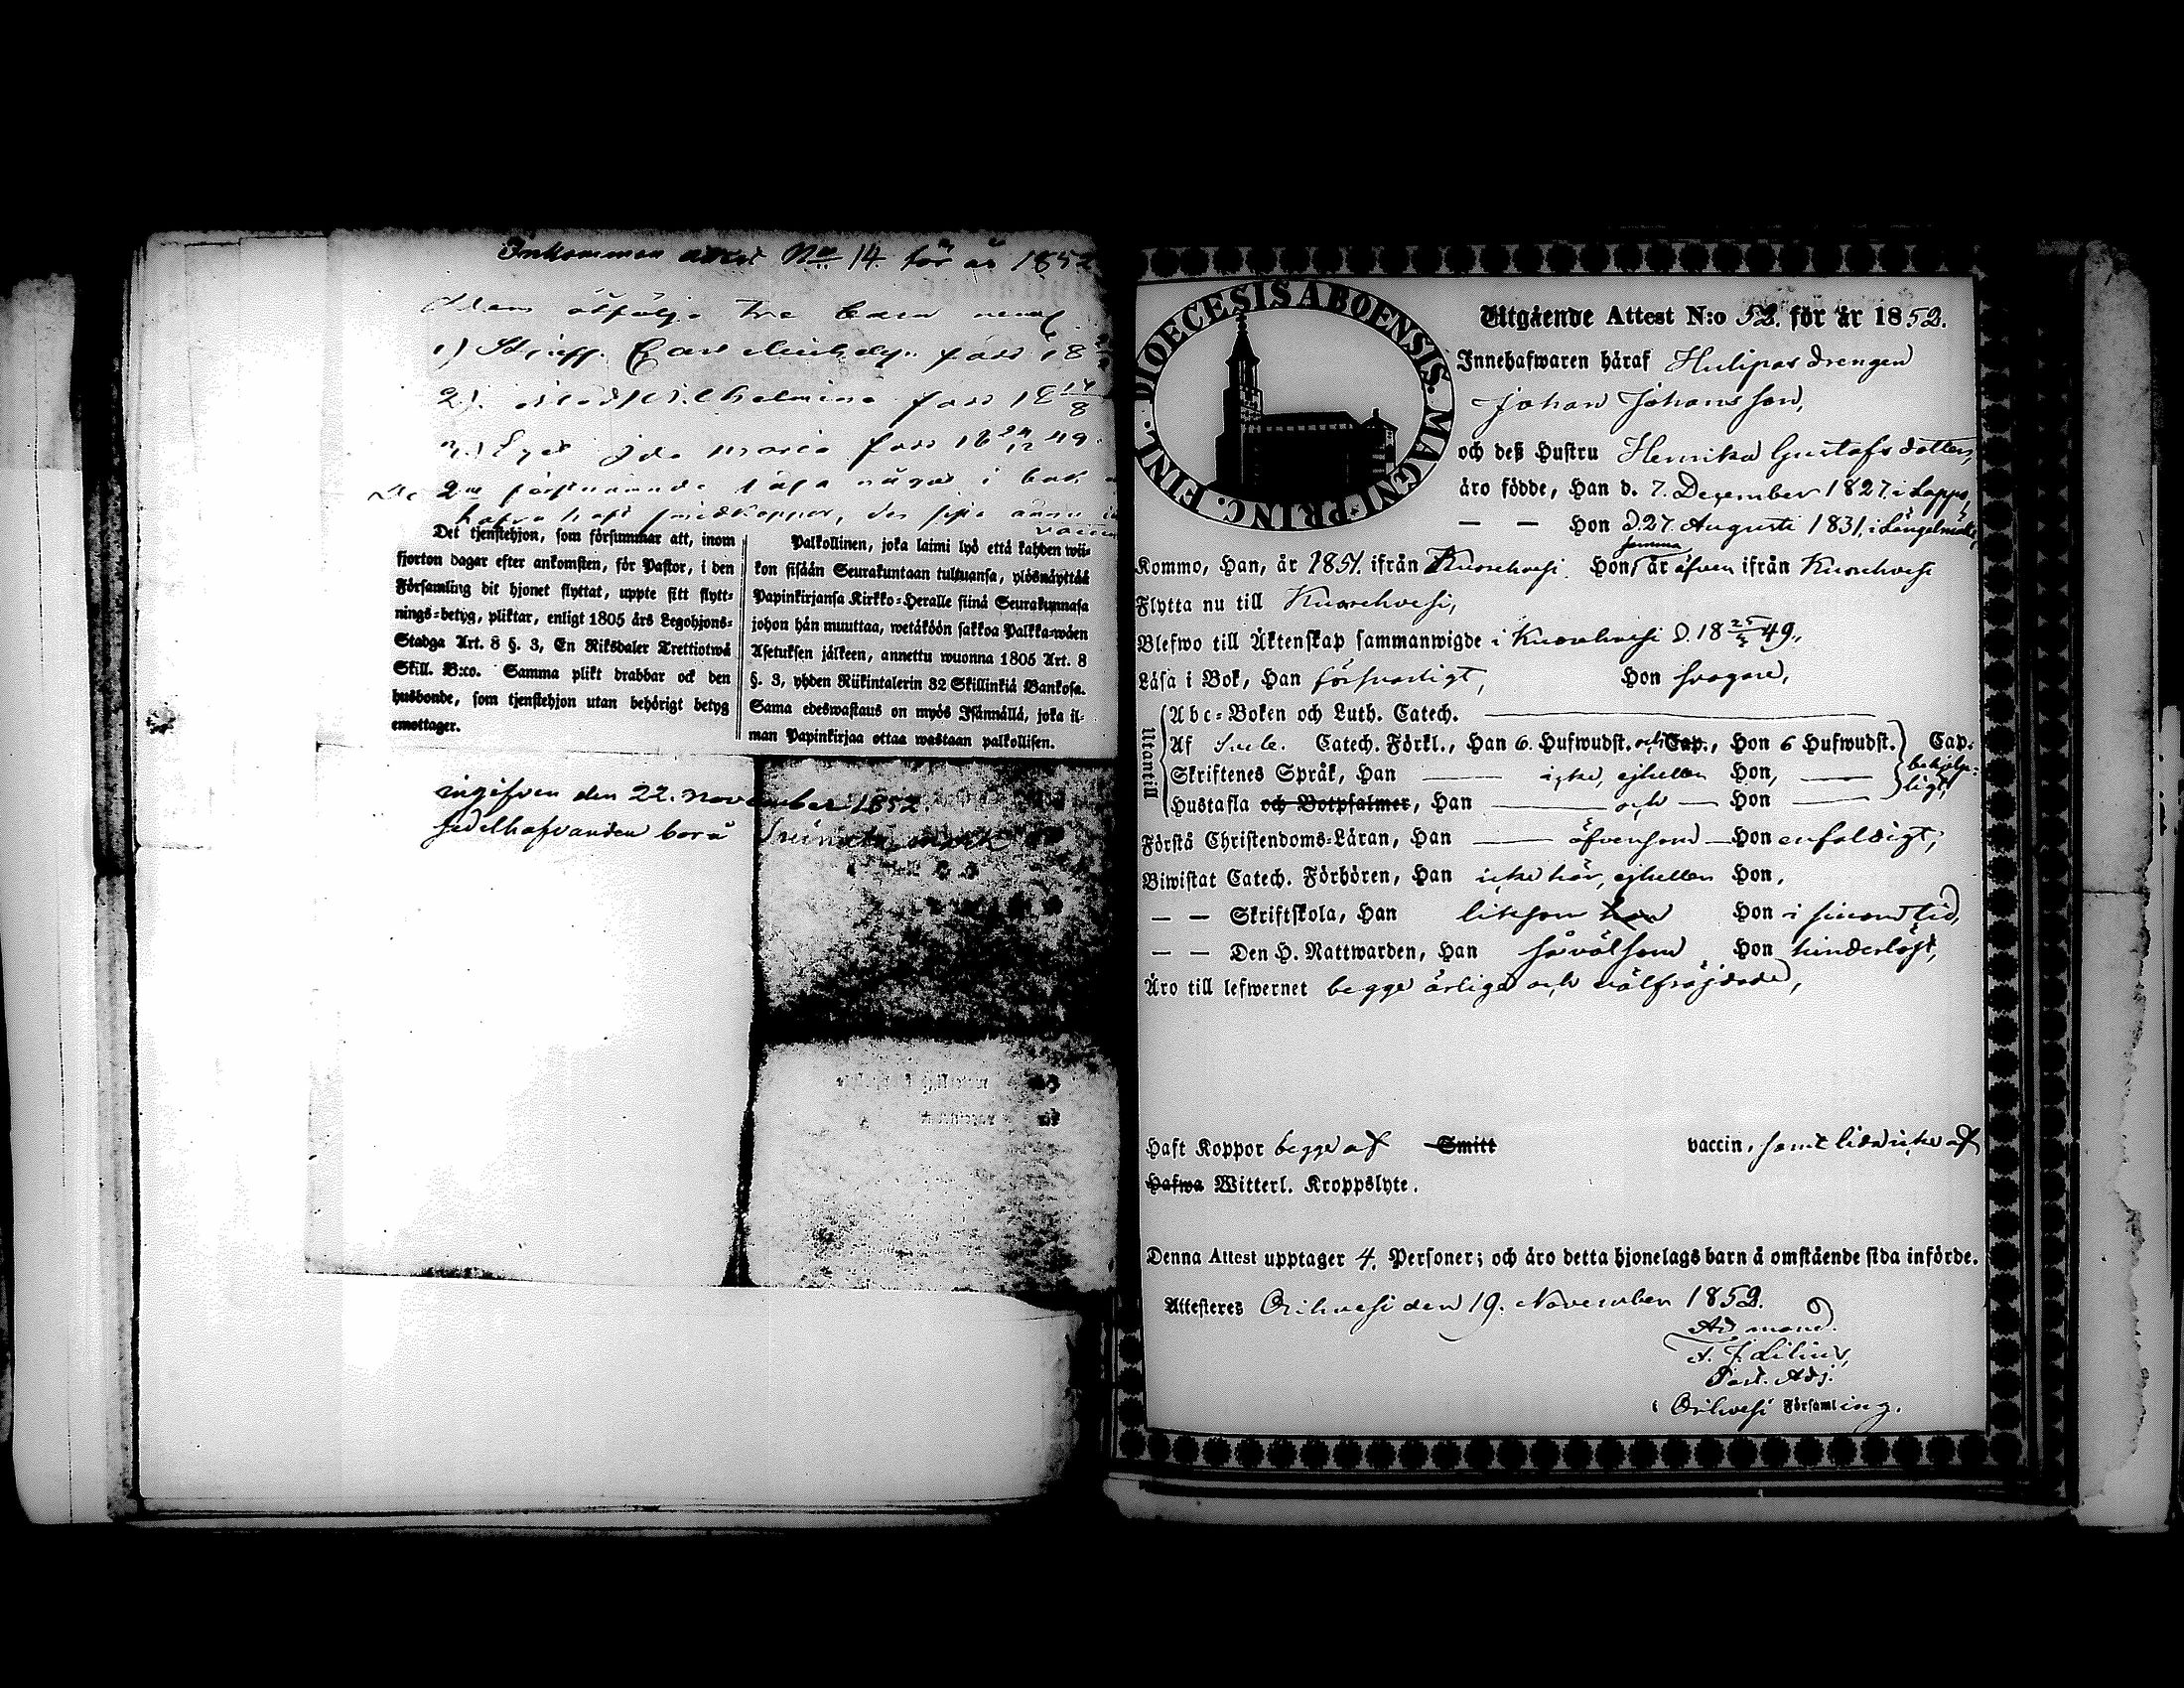 Inkommen attest No 14 för år 1852
Dem åtfölja tre barn neml.
1) Styfs. Carl född 18
2). Wilhelmina född 18 14/8
3) Eget Ida Maria född 18 24/12 49.
De 2ne förstnämnde läsa något i bok
hafva haft smedkoppor, den sista ännu
Det tjenstehjon, som försummar att, inom
fjorton dagar efter ankomsten, för Pastor, i den
Församling dit hjonet flyttat, uppte sitt flytt-
nings-betyg, pliktar, enligt 1805 års Legohjons-
Stadga Art. 8 §. 3, En Riksdaler Trettiotwå
Skill. B:co. Samma plikt drabbar ock den
husbonde, som tjenstehjon utan behörigt betyg
emottager.
Palkollinen, joka laimi lyö että kahden wii-
kon sisään Seurakuntaan tultuansa, ylösnäyttää
Papinkirjansa Kirkko-Heralle siinä Seurakunnasa
johon hän muuttaa, wetäköön sakkoa Palkka-wäen
Asetuksen jälkeen, annettu wuonna 1805 Art. 8
§. 3, yhden Riikintalerin 32 Skillinkiä Bankosa.
Sama edeswastaus on myös Isännällä, joka il-
man Papinkirjaa ottaa wastaan palkollisen.
ingifven den 22. November 1852
sedelhafvanden bor å
DIOECESIS ABOENSIS. MAGNI-PRINC. FINL.
Utgående Attest N:o 52. för år 1852.
Innehafwaren häraf Hulipas drengen
Johan Johansson,
och deß Hustru Henrika Gustafsdotter,
äro födde, Han d. 7. December 1827. i Lappo,
— — Hon d. 27. Augusti 1831. i Längelmäki,
Kommo, Han, år 1851. ifrån Kuorehvesi. Hon, samma år äfven ifrån Kuorehvesi
Flytta nu till Kuorehvesi,
Blefwo till Äktenskap sammanwigde i Kuorehvesi d. 18 25/3 49.
Läsa i Bok, Han försvarligt, Hon svagare,
Utantill
Abc-Boken och Luth. Catech. —
Af Sveb. Catech. Förkl., Han 6. Hufwudst. och Cap., Hon 6 Hufwudst. Cap. behjelpligt,
Skriftenes Språk, Han — icke, ejheller Hon, —
Hustafla och Botpsalmer, Han — och — Hon —
Förstå Christendoms-Läran, Han — äfvensom — Hon enfaldigt,
Biwistat Catech. Förhören, Han icke här, ejheller Hon,
— — Skriftskola, Han liksom Hon i sinom tid,
— — Den H. Nattwarden, Han såväl som Hon hinderlöst,
Äro till lefwernet begge ärliga och välfräjdade,
Haft Koppor begge af Smitt vaccin, samt lida icke af
Hafwa Witterl. Kroppslyte.
Denna Attest upptager 4. Personer; och äro detta hjonelags barn å omstående sida införde.
Attesteras Orihvesi den 19. November 1852.
Ad mand.
Lilius,
Past. Adj.
i Orihvesi Församling.